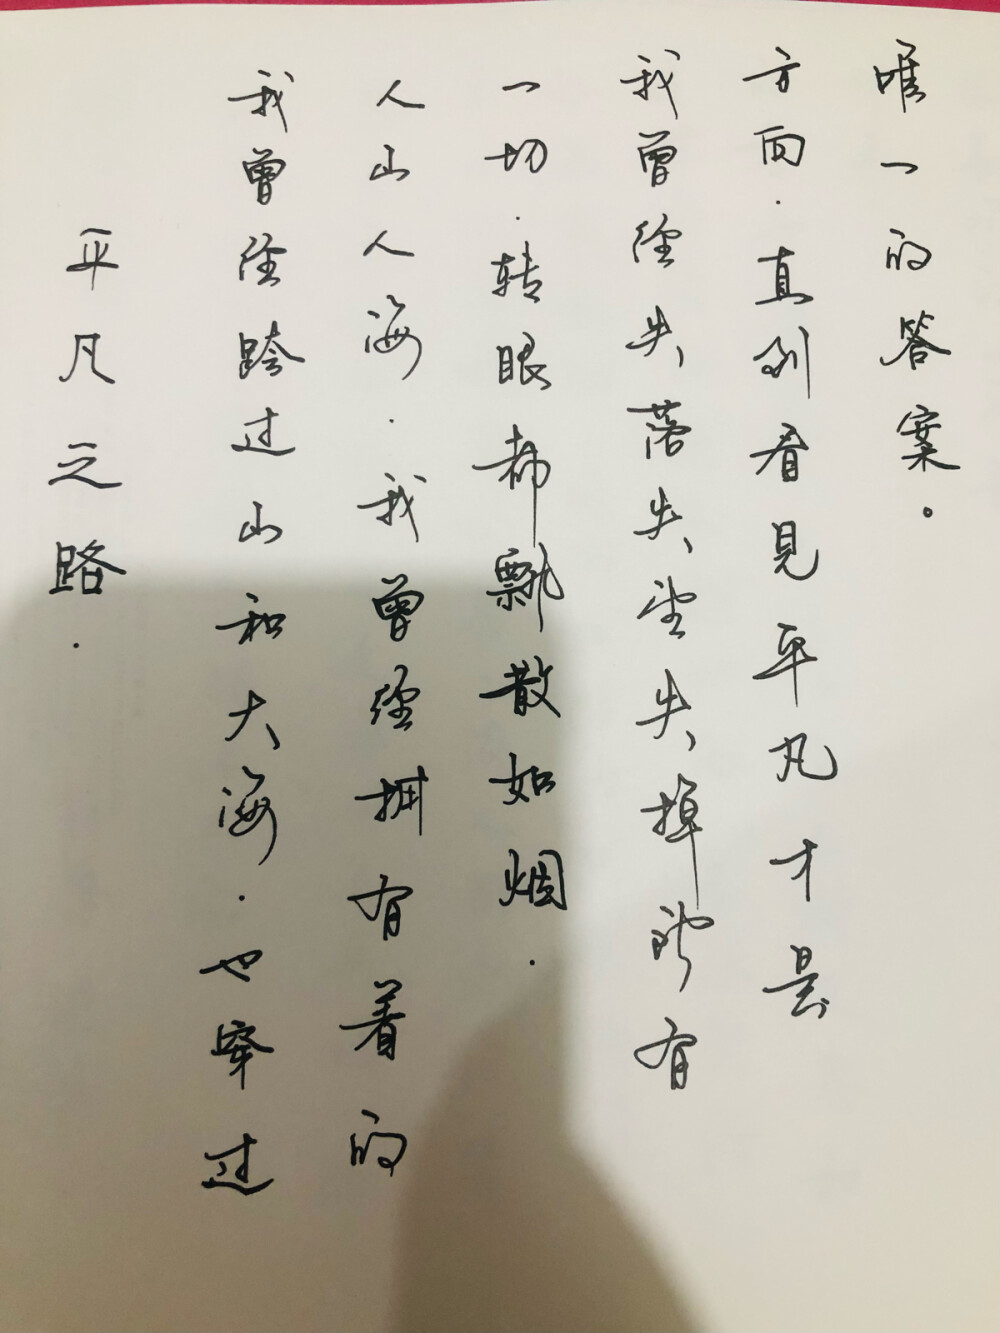 平凡之路.
我曾经跨过山和大海.也穿过
人山人海.我曾经拥有着的
一切.转眼都飘散如烟.
我曾经失落失望失掉所有
方向.直到看见平凡才是
唯一的答案。